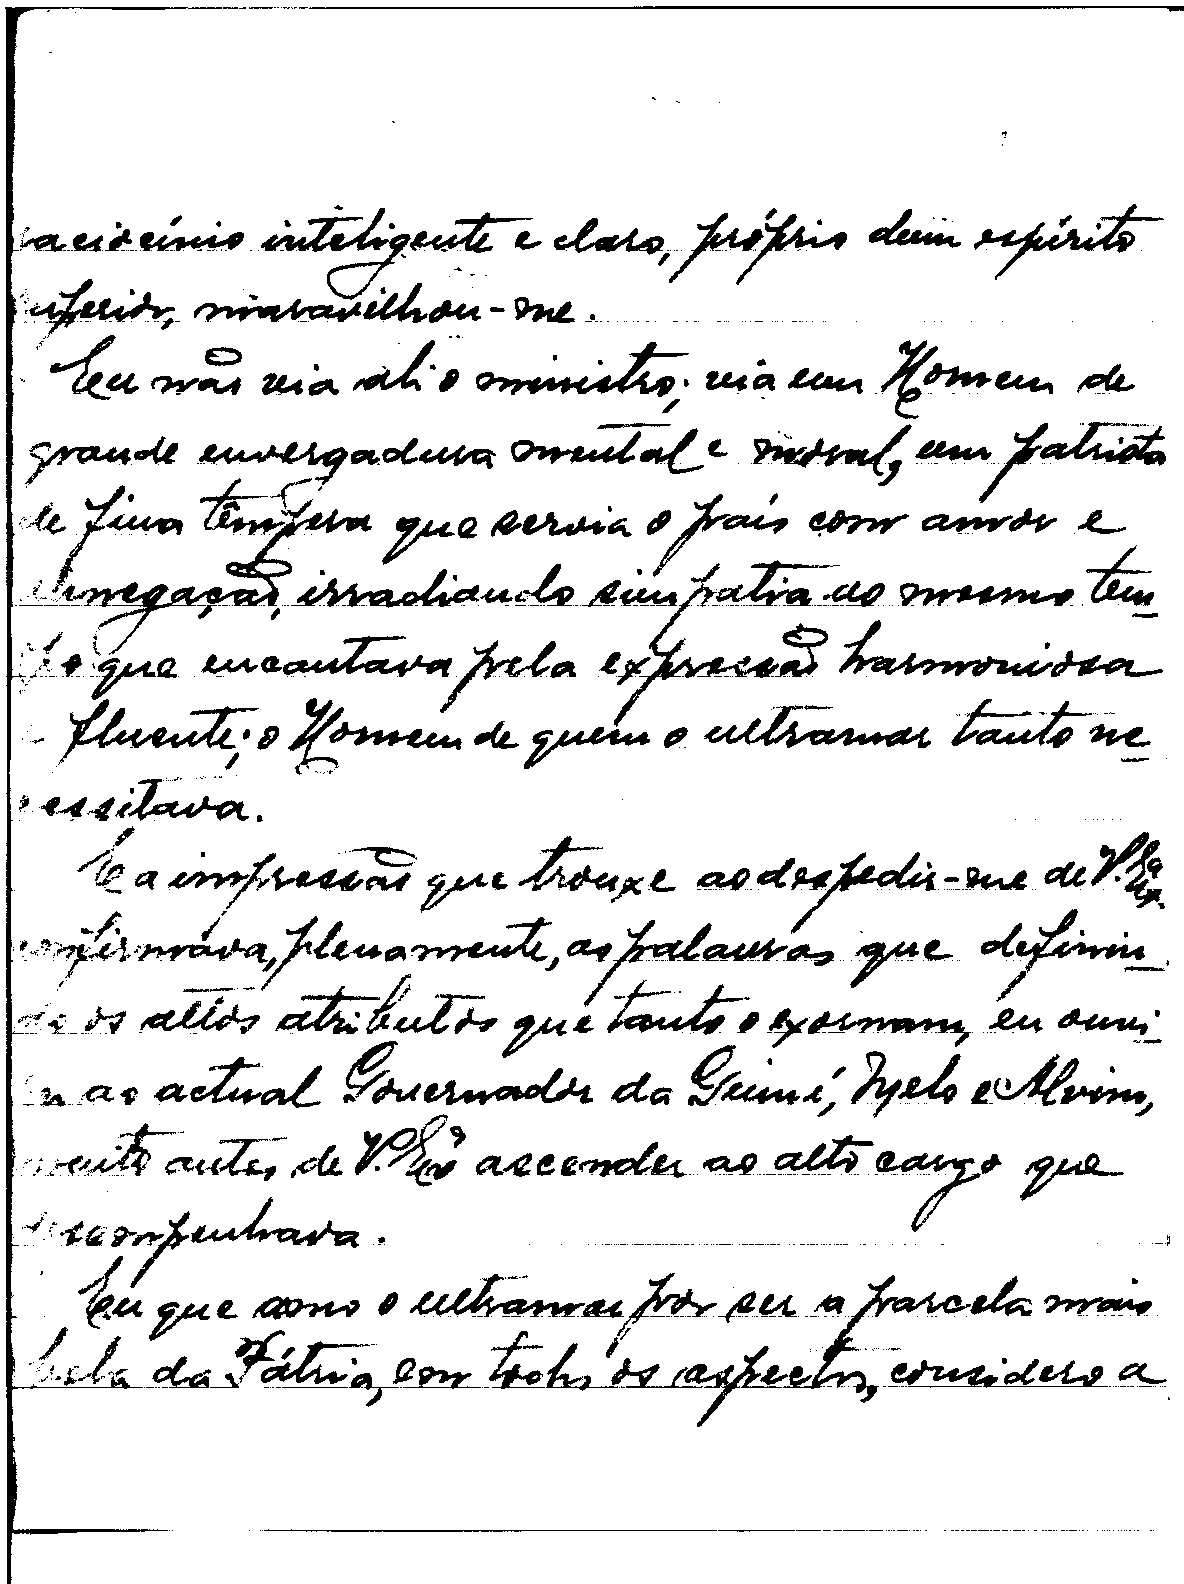 raciocínio inteligente e claro, próprio dum espírito
superior, maravilhou-me.
Eu não via ali o ministro; via um Homem de
grande envergadura mental e moral, um patriota
de fina têmpera que servia o país com amor e
abnegação, irradiando simpatia ao mesmo tem-
po que encantava pela expressão harmoniosa
e fluente; o Homem de quem o ultramar tanto ne-
cessitava.
E a impressão que trouxe ao despedir-me de V. Exª.
confirmava, plenamente, as palavras que definin-
do os altos atributos que tanto o exornam, eu ouvi-
ra ao actual Governador da Guiné, Melo e Alvim,
muito antes de V. Exª ascender ao alto cargo que
desempenhava.
Eu que amo o ultramar por ser a parcela mais
bela da Pátria, em todos os aspectos, considero a